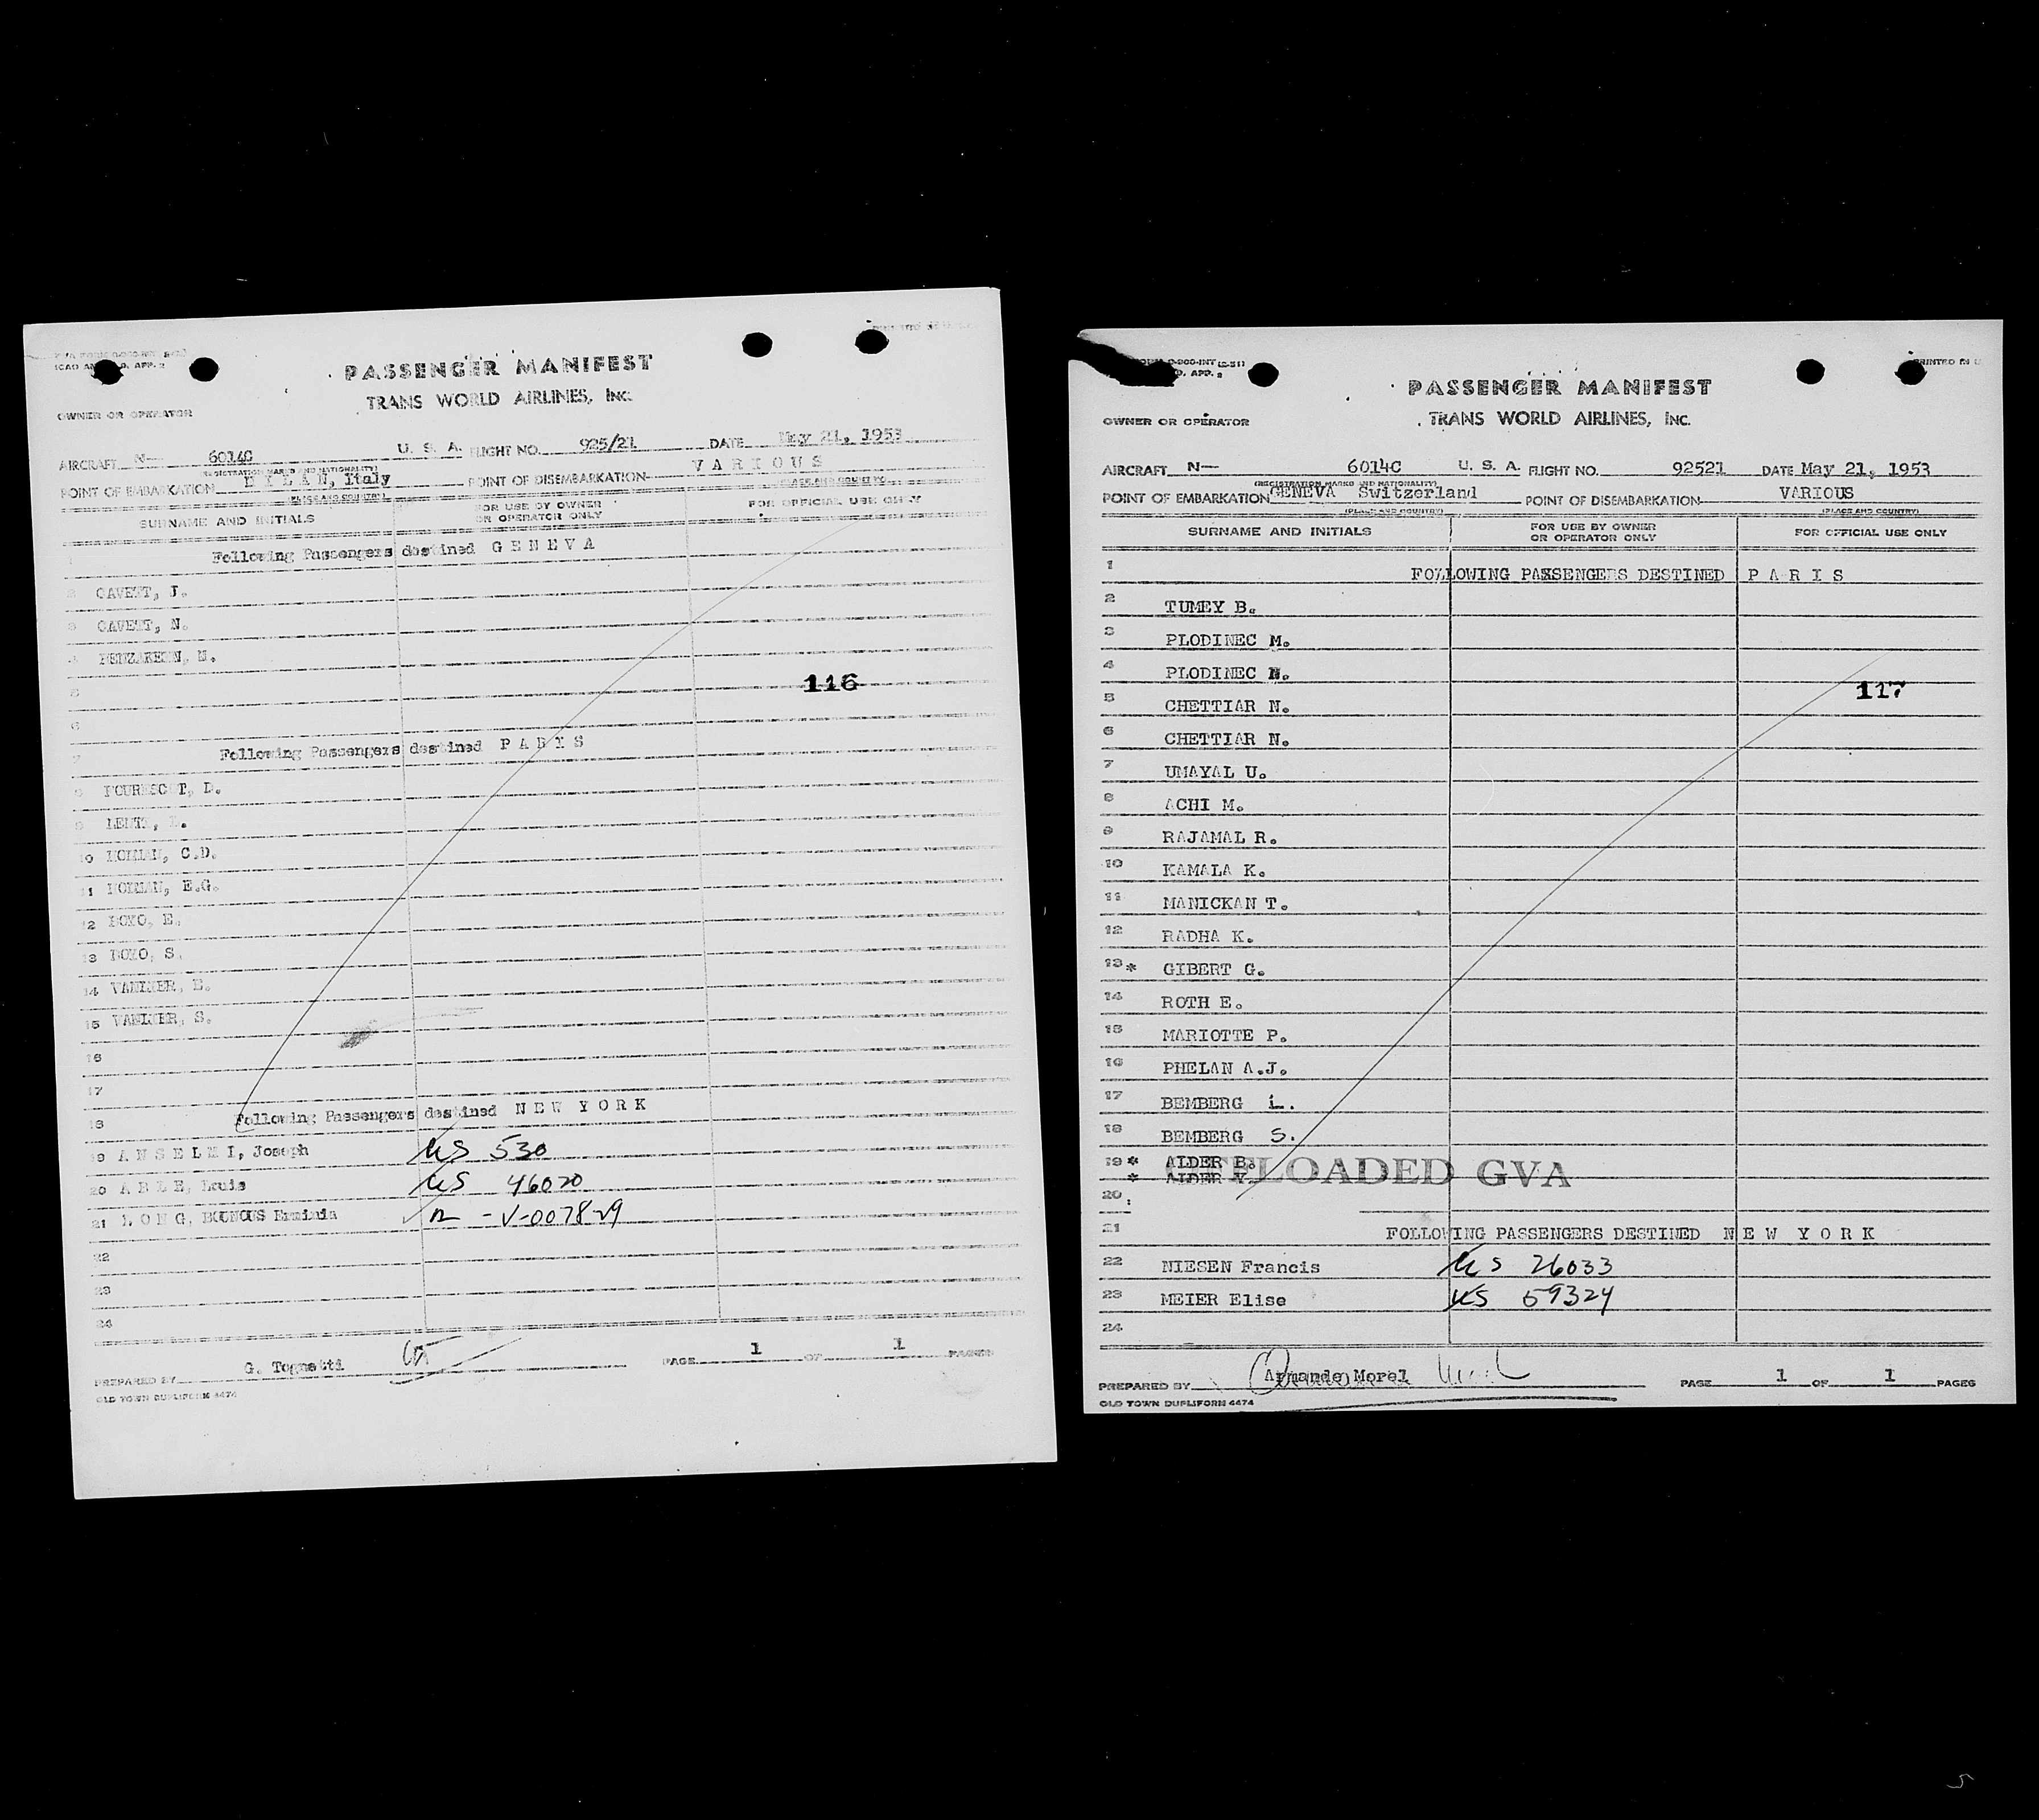 ICAO AN
D. APP. 2
PASSENGER MANIFEST
TRANS WORLD AIRLINES, Inc.
OWNER OR OPERATOR
AIRCRAFT N— 6014C U. S. A. FLIGHT NO. 925/21 DATE May 21, 1953
(REGISTRATION MARKS AND NATIONALITY)
POINT OF EMBARKATION M Y L A N, Italy POINT OF DISEMBARKATION V A R I O U S
(PLACE AND COUNTRY) (PLACE AND COUNTRY)
SURNAME AND INITIALS FOR USE BY OWNER OR OPERATOR ONLY FOR OFFICIAL USE ONLY
1 Following Passengers destined G E N E V A
2 CAVETT, J.
3 CAVETT, N.
4
5
116
6
7 Following Passengers destined P A R I S
8
9
10 NORMAN, C.D.
11 NORMAN, E.G.
12 E.
13 S.
14 E.
15 S.
16
17
18 Following Passengers destined N E W Y O R K
19 A N S E L M I, Joseph US 530
20 A B L E, Louis US 46020
21 L O N G, BOUNOUS Erminia V-007829
22
23
24
PREPARED BY G. Tognetti PAGE 1 OF 1 PAGES
OLD TOWN DUPLIFORM 4474
FORM O-900-INT (2-51)
D. APP. 2
PRINTED IN U
PASSENGER MANIFEST
TRANS WORLD AIRLINES, Inc.
OWNER OR OPERATOR
AIRCRAFT N— 6014C U. S. A. FLIGHT NO. 92521 DATE May 21, 1953
(REGISTRATION MARKS AND NATIONALITY)
POINT OF EMBARKATION GENEVA Switzerland POINT OF DISEMBARKATION VARIOUS
(PLACE AND COUNTRY) (PLACE AND COUNTRY)
SURNAME AND INITIALS FOR USE BY OWNER OR OPERATOR ONLY FOR OFFICIAL USE ONLY
1 FOLLOWING PASSENGERS DESTINED P A R I S
2 TUMEY B.
3 PLODINEC M.
4 PLODINEC N.
5 CHETTIAR N. 117
6 CHETTIAR N.
7 UMAYAL U.
8 ACHI M.
9 RAJAMAL R.
10 KAMALA K.
11 MANICKAN T.
12 RADHA K.
13 * GIBERT G.
14 ROTH E.
15 MARIOTTE P.
16 PHELAN A.J.
17 BEMBERG L.
18 BEMBERG S.
19 * ALDER B.
* ALDER V.
OFFLOADED GVA
20
21 FOLLOWING PASSENGERS DESTINED N E W Y O R K
22 NIESEN Francis US 26033
23 MEIER Elise US 59324
24
PREPARED BY Armande Morel PAGE 1 OF 1 PAGES
OLD TOWN DUPLIFORM 4474